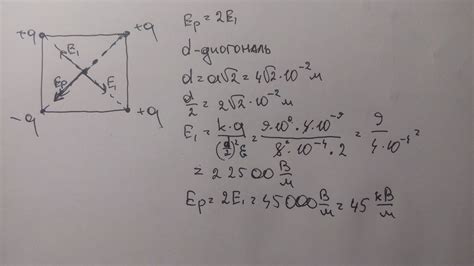 +q +q
E₁
Eр
E₁
-q +q
Eр = 2E₁
d-диогональ
d = a√2 = 4√2·10⁻² м
d/2 = 2√2·10⁻² м
E₁ = k·q/((d/2)²ε) = 9·10⁹·4·10⁻⁹/(8·10⁻⁴·2) = 9/(4·10⁻⁴) =
= 22500 В/м
Eр = 2E₁ = 45000 В/м = 45 кВ/м